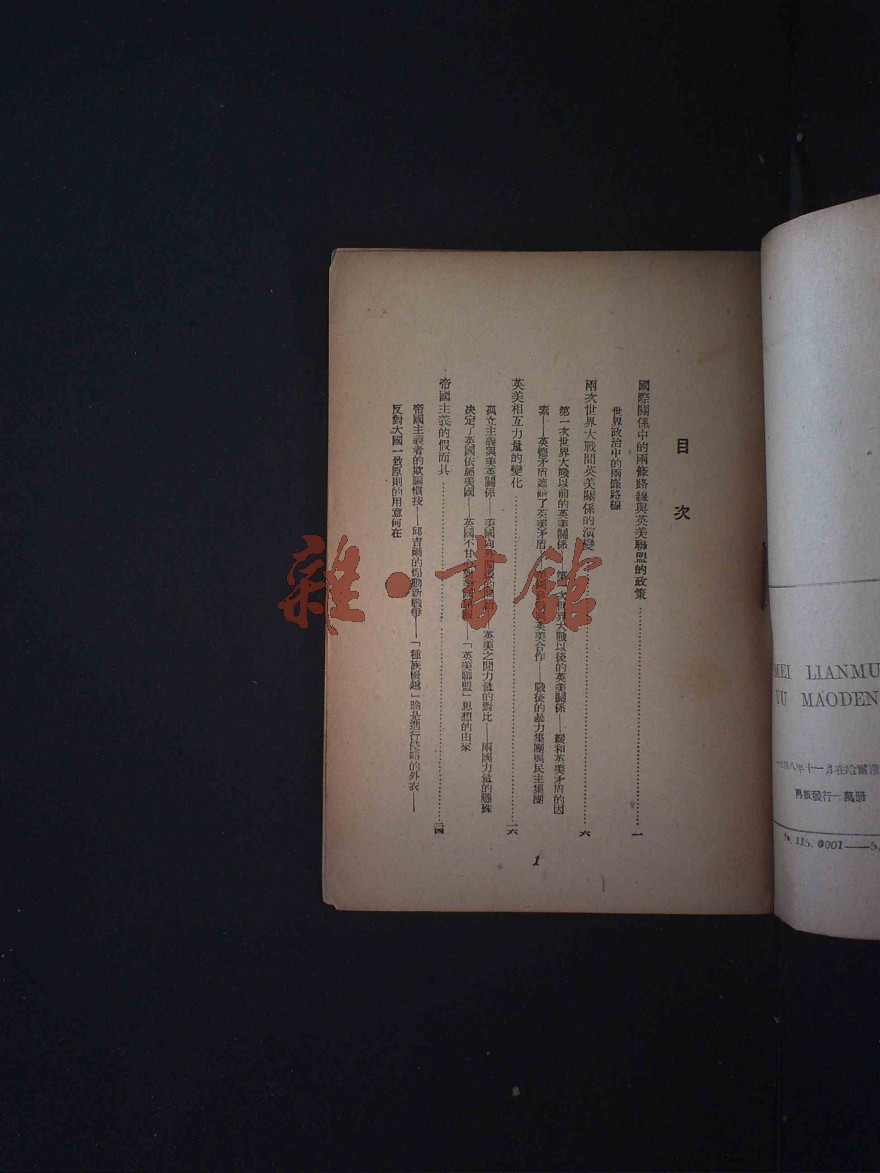 目次
國際關係中的兩條路線與英美聯盟的政策……一
世界政治中的兩條路線
兩次世界大戰間英美關係的演變……六
第一次世界大戰以前的英美關係——第一次世界大戰以後的英美關係——緩和英美矛盾的因
素——英德矛盾遮蔽了英美矛盾 英美合作——戰後的暴力集團與民主集團
英美相互力量的變化……一六
孤立主義與美英關係——美國向 英美之間力量的對比——兩國力量的懸殊
決定了英國依屬美國——英國不甘 「英美聯盟」思想的由來
帝國主義的假面具……二四
帝國主義者的欺騙慣技——邱吉爾的煽動新戰爭——「種族優越」論是進行侵略的外衣——
反對大國一致原則的用意何在
1
雜·書館
MEI LIANMU
YU MAODEN
一九四八年十一月在哈爾濱
再版發行一萬冊
115. 0001——5,